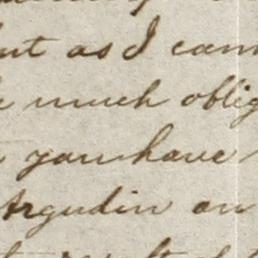 but as I cann
much oblig
you have
Argudin on